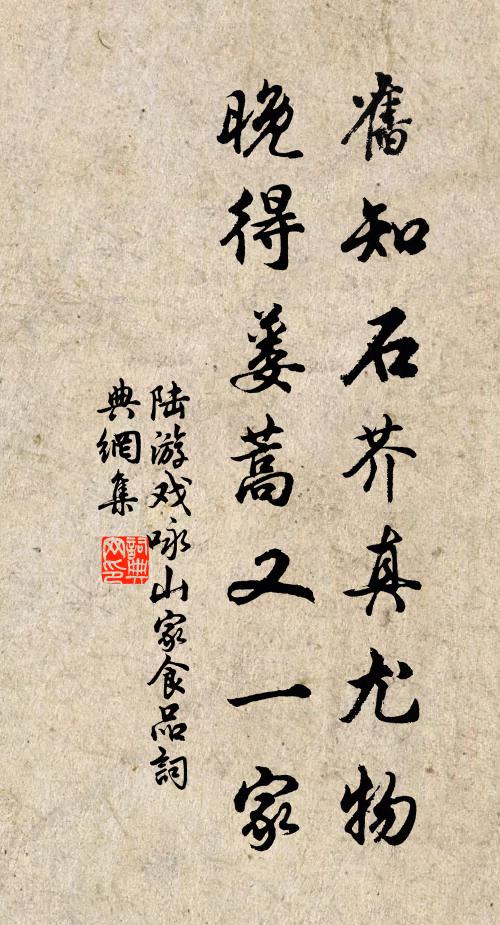 舊知石芥真尤物
晚得蔞蒿又一家
陆游戏咏山家食品詞
典網集
詞典
网印